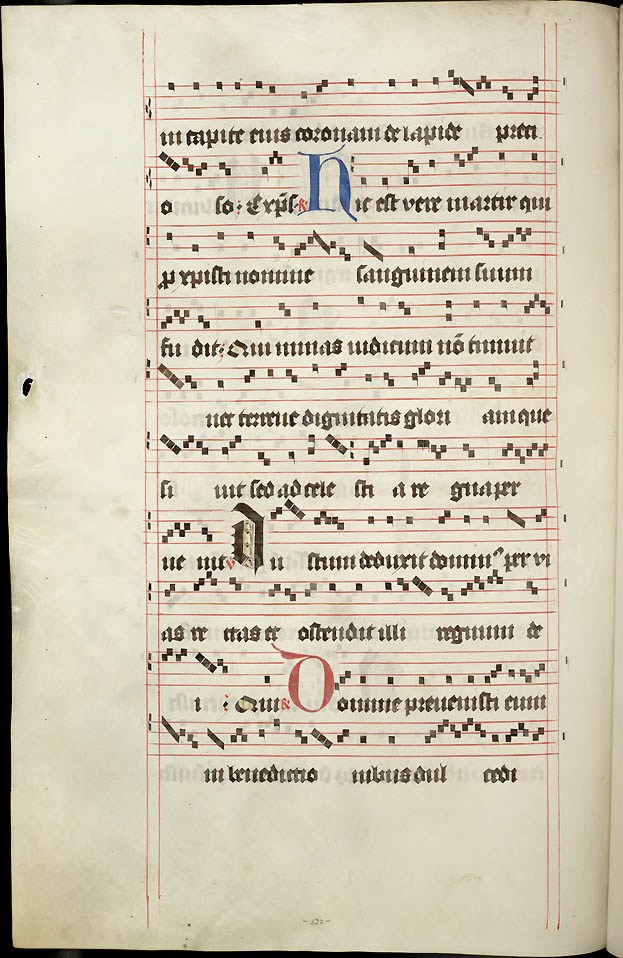 in capite eius coronam de lapide preci
o so : Exp̄s. R Hic est vere martir qui
p xpisti nomine sanguinem suum
fu dit : Qui minas iudicum nō timuit
nec terrene dignitatis glori am que
si uit sed ad cele sti a re gna per
ue nit V Iu stum deduxit dominꝰ per vi
as re ctas et ostendit illi regnum de
i : Qui R Domine prevenisti eum
in benedictio nibus dul cedi